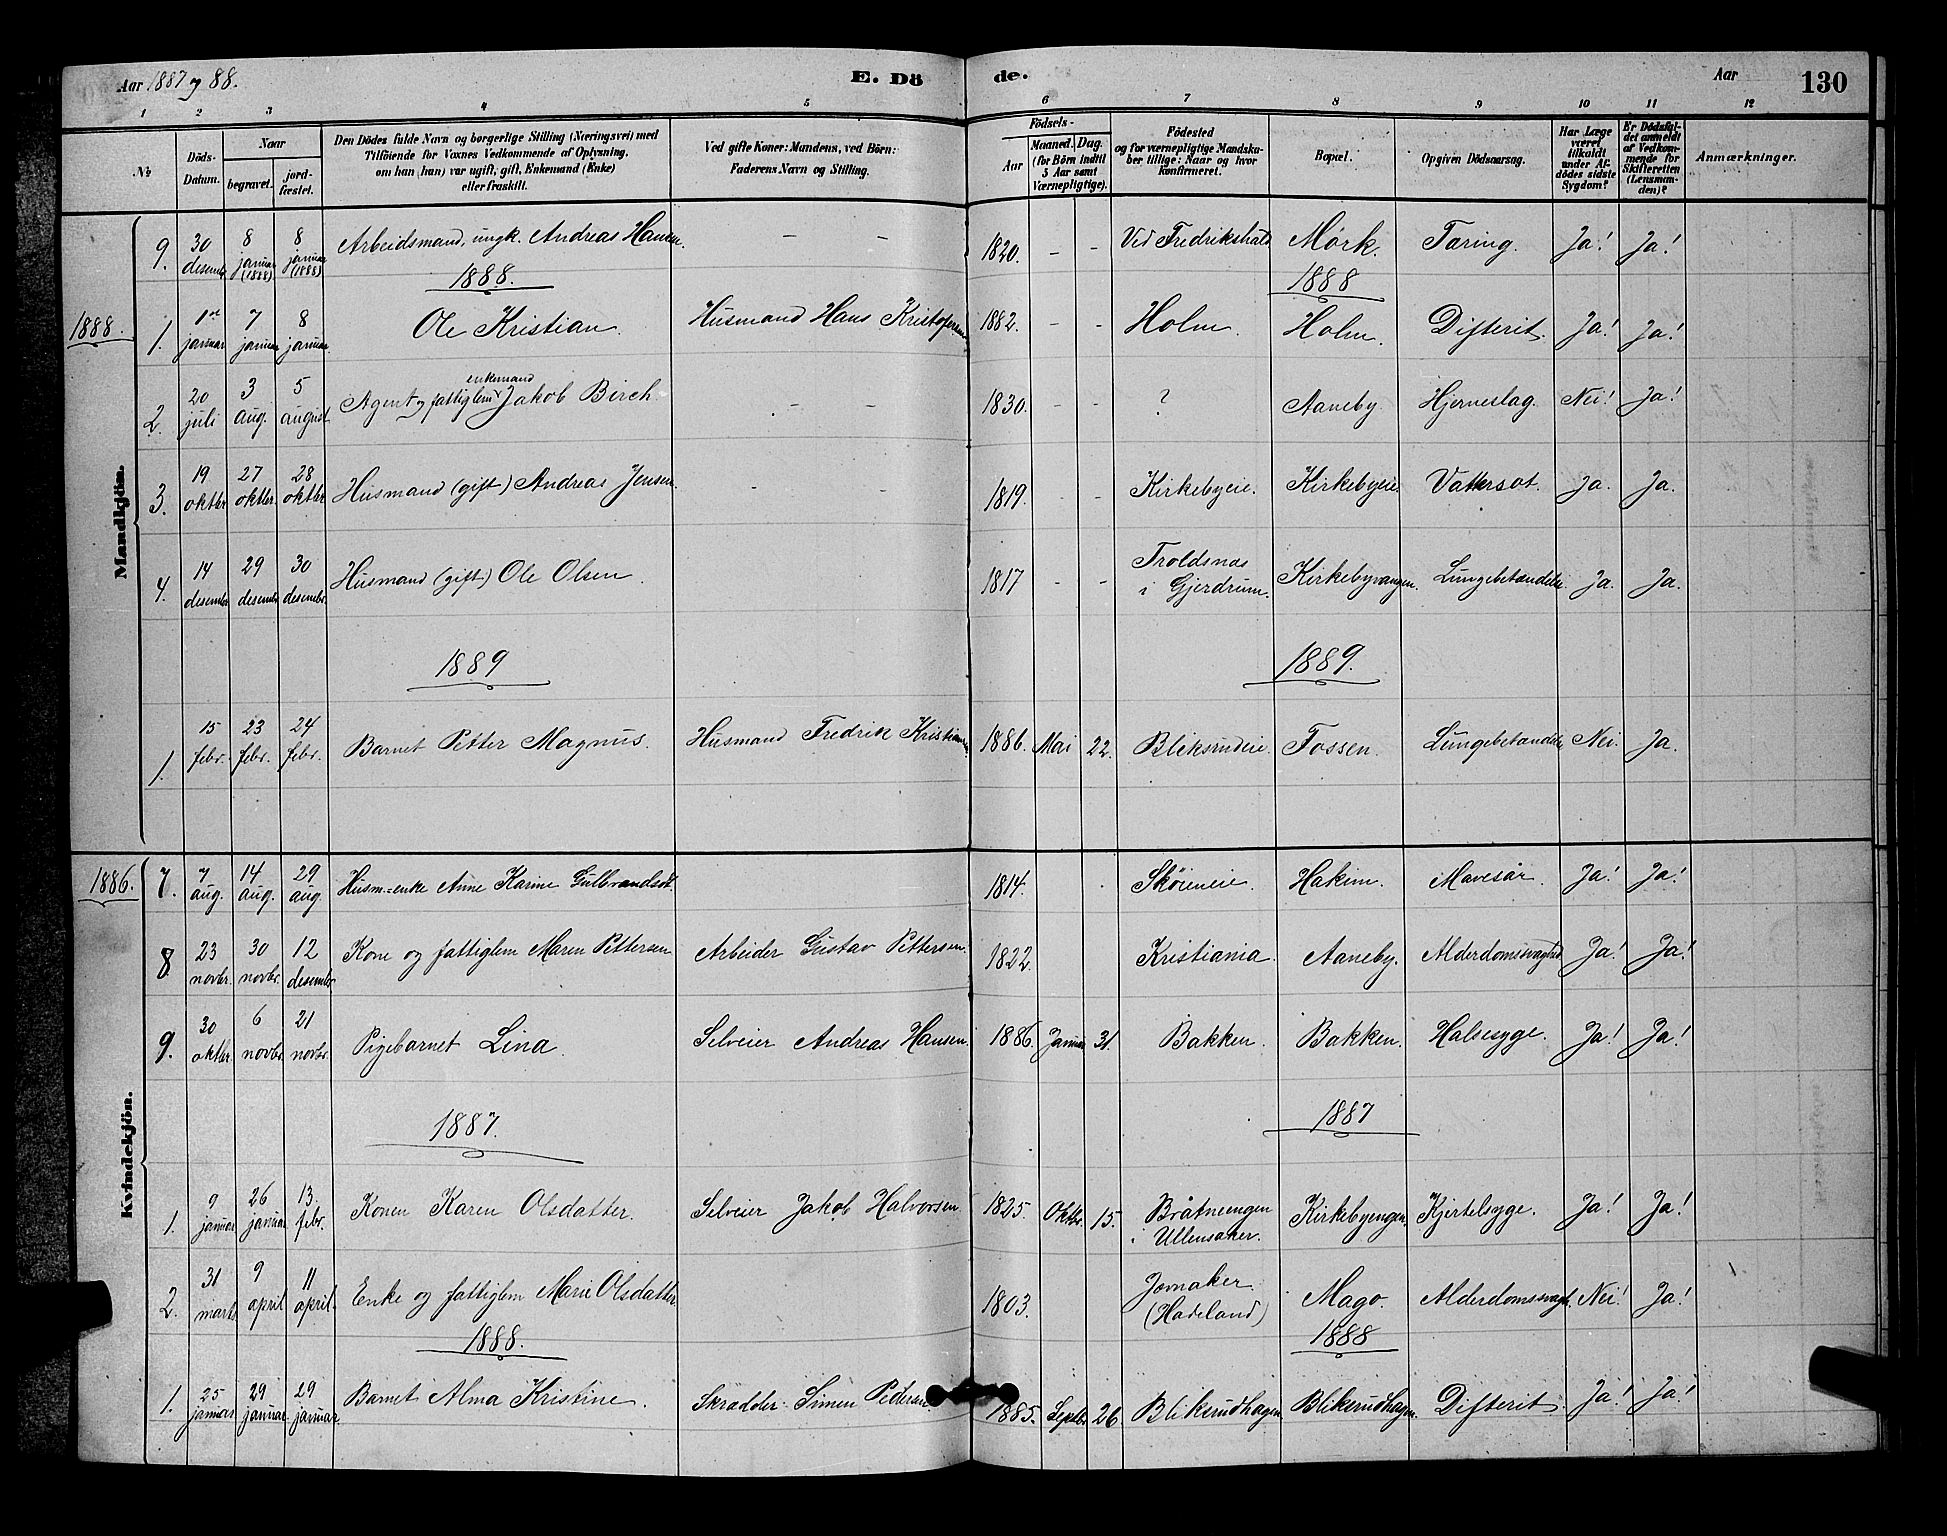 Aar 1887 og 88.
E. Dö de.
Aar
130
1 2 3 4 5 6 7 8 9 10 11 12
No.
Döds-Datum.
Naar
begravet.
jord-fæstet.
Den Dödes fulde Navn og borgerlige Stilling (Næringsvei) med
Tilföiende for Voxnes Vedkommende af Oplysning,
om han (hun) var ugift, gift, Enkemand (Enke)
eller fraskilt.
Ved gifte Koner: Mandens, ved Börn:
Faderens Navn og Stilling.
Födsels-
Aar
Maaned. Dag.
(for Börn indtil
5 Aar samt
Værnepligtige).
Födested
og for værnepligtige Mandska-
ber tillige: Naar og hvor
konfirmeret.
Bopæl.
Opgiven Dödsaarsag.
Har Læge
været
tilkaldt
under Af-
dödes sidste
Sygdom?
Er Dödsfal-
det anmeldt
af Vedkom-
mende for
Skifteretten
(Lensman-
den)?
Anmærkninger.
Mandkjön.
9. 30 desembr 8 januar (1888) 8 januar (1888) Arbeidsmand, ungk. Andreas Hansen. - - 1820. - - Ved Fredrikshald Mørk. Tæring. Ja! Ja!
1888. 1888
1888.
1. 1ste januar 7 januar 8 januar. Ole Kristian. Husmand Hans Kristofersen 1882. - - Holm. Holm. Difterit. Ja! Ja!
2. 20 juli 3 aug. 5 august Agent og fattiglem enkemand Jakob Birch. - - 1830. - - ? Aaneby. Hjerneslag. Nei! Ja!
3. 19 oktbr 27 oktbr. 28 oktbr. Husmand (gift) Andreas Jensen. - - 1819. - - Kirkebyeie. Kirkebyeie. Vattersot. Ja. Ja.
4. 14 desembr 29 desembr 30 desembr. Husmand (gift) Ole Olsen. 1817 - - Troldsnæs i Gjerdrum. Kirkebyvangen. Lungebetændelse Ja. Ja.
1889 1889.
1. 15 febr. 23 febr. 24 febr. Barnet Petter Magnus. Husmand Fredrik Kristiansen 1886. Mai 22. Bliksrudeie. Fossen. Lungebetændelse Nei. Ja.
Kvindekjön.
1886. 7. 7 aug. 14 aug. 29 aug. Husm.=enke Anne Karine Gulbrandsdt. 1814. Skøieneie. Hakim. Mavesår. Ja! Ja!
8 23 novbr. 30 novbr. 12 desembr Kone og fattiglem Maren Pettersen Arbeider Gustav Pettersen. 1822. Kristiania. Aaneby. Alderdomssvaghed Ja! Ja!
9. 30 oktbr. 6 novbr 21 novbr. Pigebarnet Lina. Selveier Andreas Hansen. 1886. Januar 31. Bakken. Bakken. Halsesyge. Ja! Ja!
1887. 1887
1. 9 januar 26 januar 13. febr. Konen Karen Olsdatter. Selveier Jakob Halvorsen 1825. Oktbr. 15. Bråtneengen i Ullensaker. Kirkebyengen. Kjertelsyge. Ja! Ja!
2. 31 marts 9 april 11 april. Enke og fattiglem Marie Olsdatter 1803. Jevnaker (Hadeland) Mago. Alderdomssvagh. Nei! Ja!
1888. 1888
1. 25 januar 29 januar. 29 januar. Barnet Alma Kristine. Skrædder Simen Pedersen. 1885. Septbr. 26 Bliksrudhagen. Bliksrudhagen. Difterit. Ja! Ja!